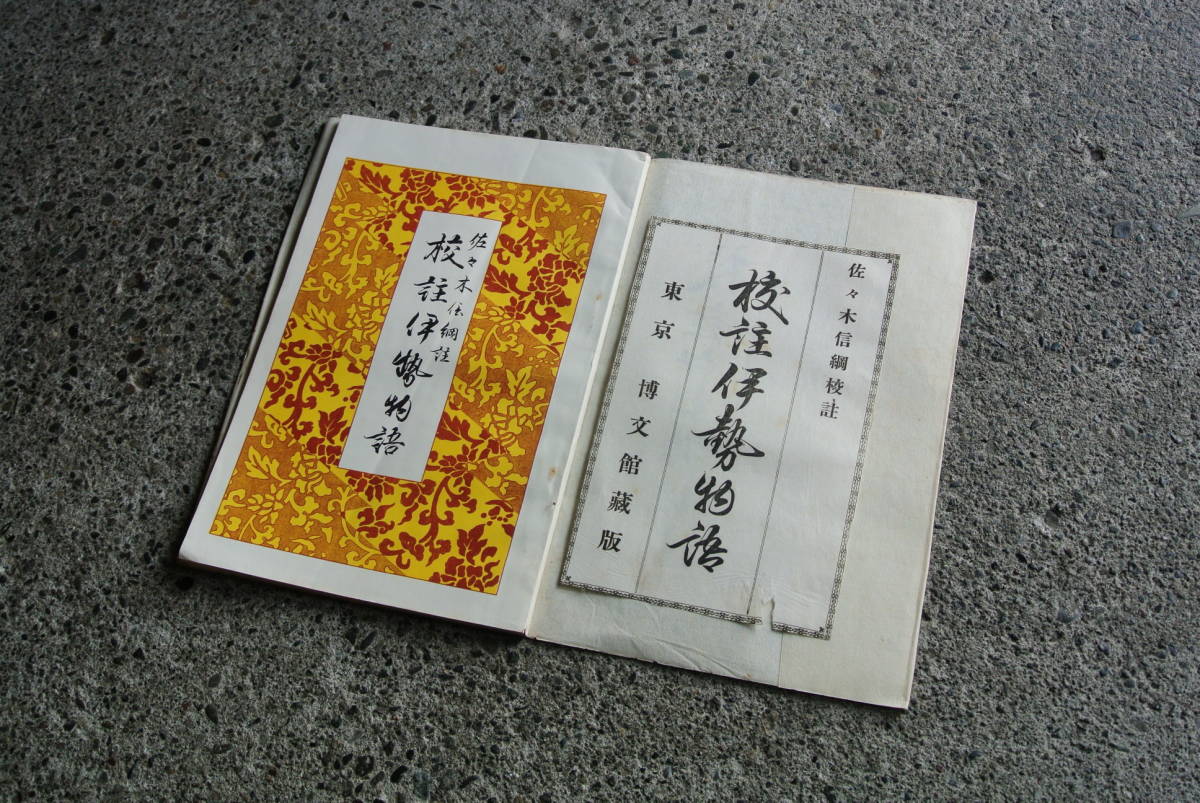 佐々木信綱校註
校註伊勢物語
東京 博文館藏版
佐々木信綱註
校註伊勢物語